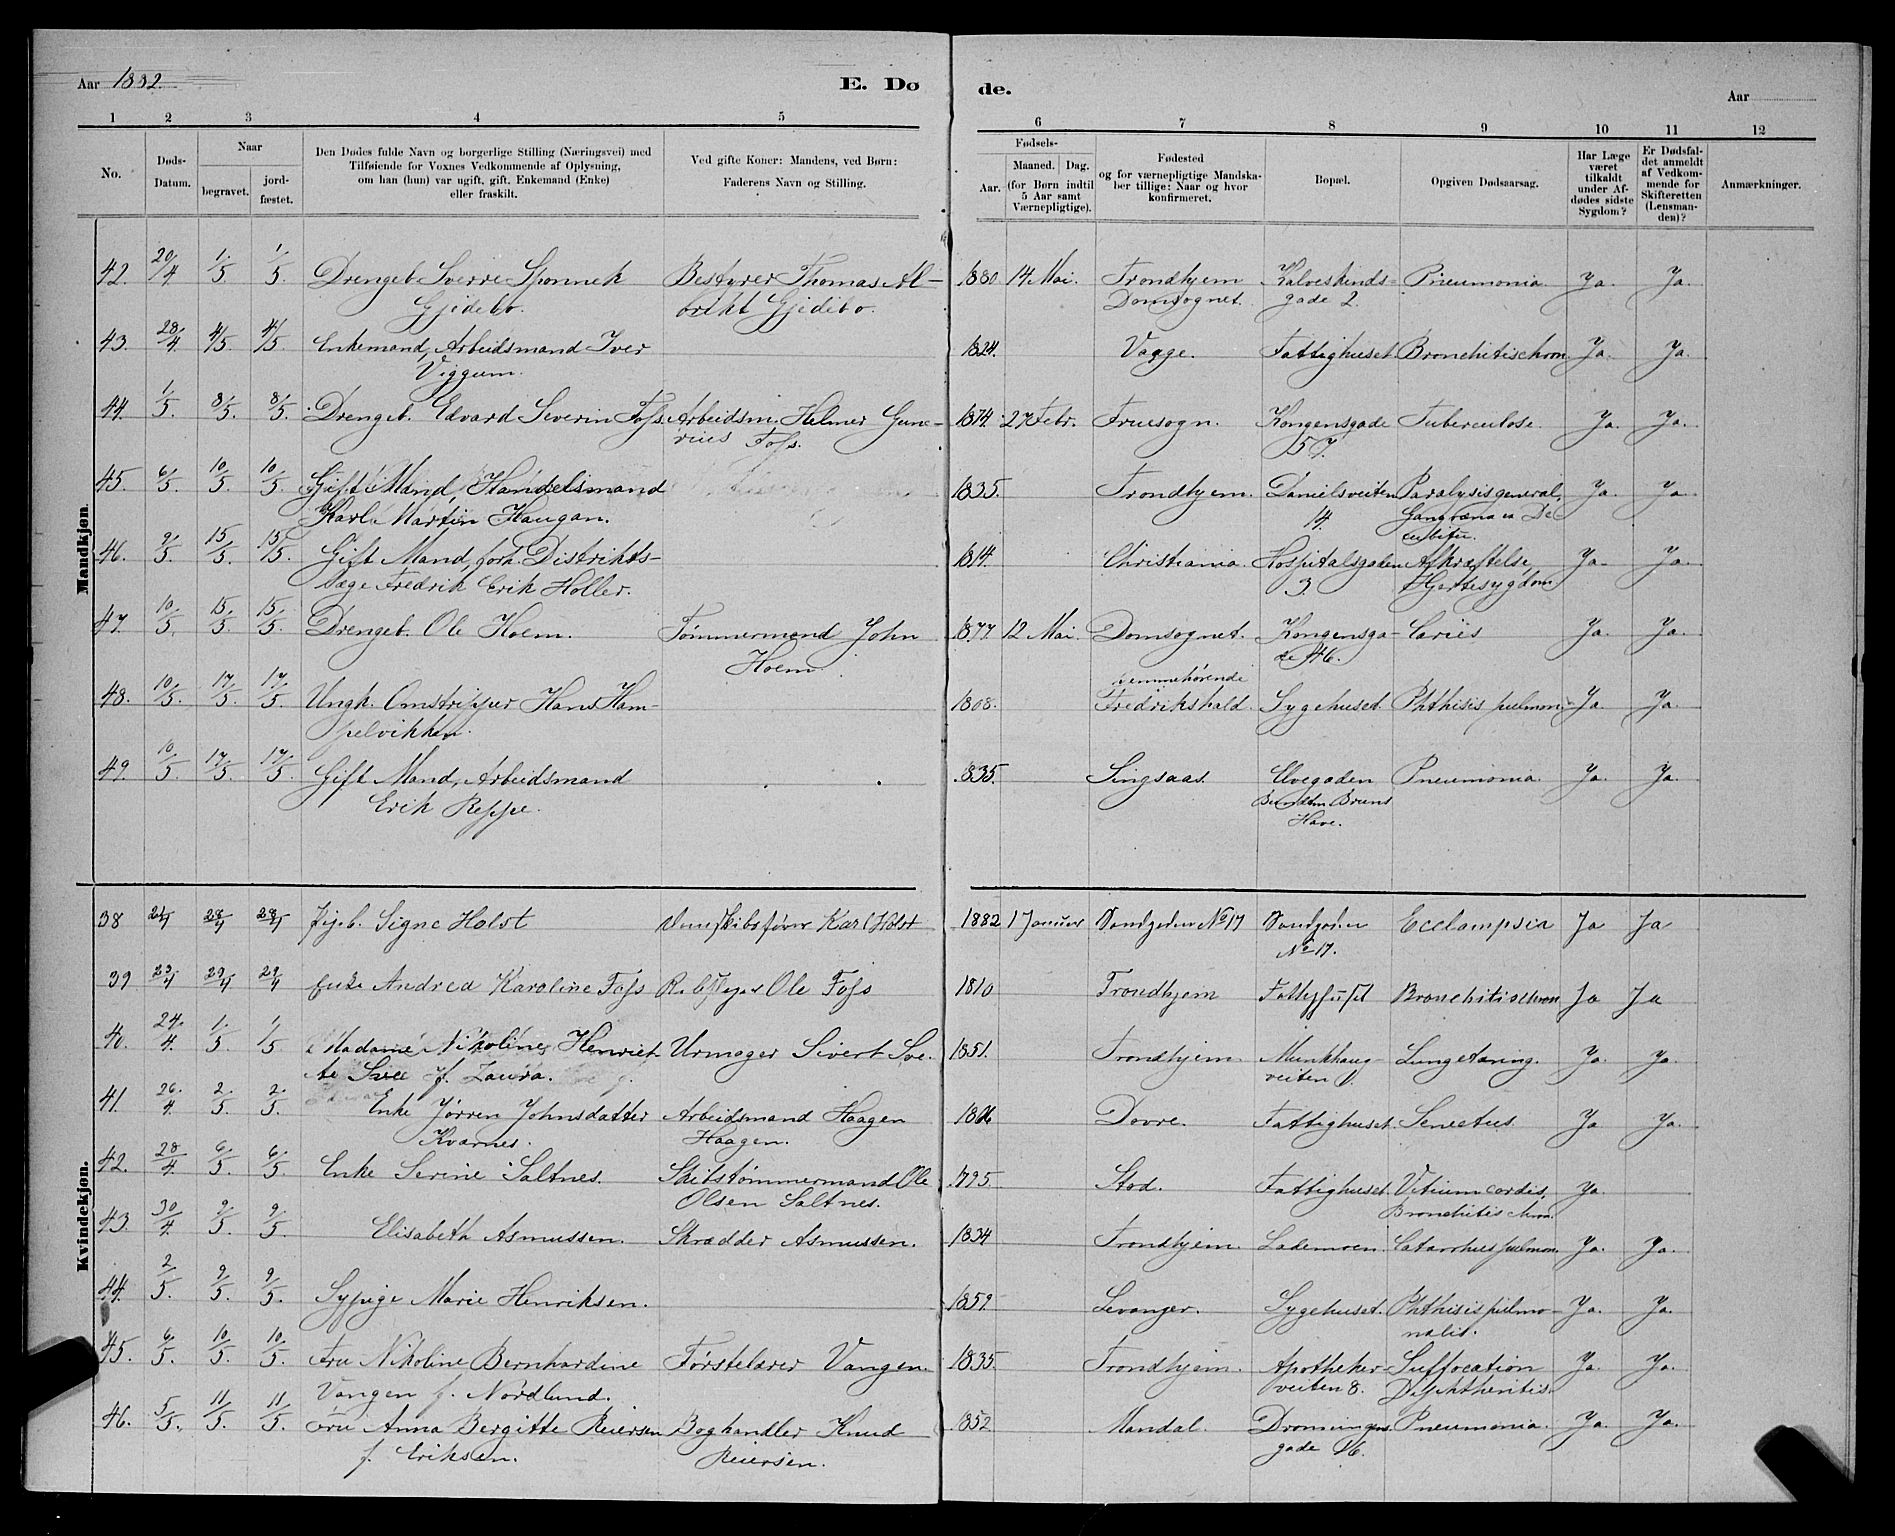 Aar 1882.
E. Dø
de.
Aar
1 2 3 4 5 6 7 8 9 10 11 12
No.
Døds-Datum.
Naar
begravet. jord-fæstet.
Den Dødes fulde Navn og borgerlige Stilling (Næringsvei) med
Tilføiende for Voxnes Vedkommende af Oplysning,
om han (hun) var ugift, gift, Enkemand (Enke)
eller fraskilt.
Ved gifte Koner: Mandens, ved Børn:
Faderens Navn og Stilling.
Fødsels-
Aar. Maaned. Dag.
(for Børn indtil
5 Aar samt
Værnepligtige).
Fødested
og for værnepligtige Mandska-
ber tillige: Naar og hvor
konfirmeret.
Bopæl.
Opgiven Dødsaarsag.
Har Læge
været
tilkaldt
under Af-
dødes sidste
Sygdom?
Er Dødsfal-
det anmeldt
af Vedkom-
mende for
Skifteretten
(Lensman-
den)?
Anmærkninger.
Mandkjøn.
42. 20/4 1/5 1/5 Drengeb. Sverre Sponnek Bestyrer Thomas Al- 1880 14 Mai. Trondhjem Kalveskinds- Pneumonia. Ja. Ja.
Gjidebo. brikt Gjidebo. Domsognet. gade 2.
43. 28/4 4/5 4/5 Enkemand, Arbeidsmand Iver 1824. Vagge. Fattighuset Bronchitis chron. Ja. Ja.
Viggum.
44. 1/5 8/5 8/5 Drengeb. Edvard Severin Foss. Arbeidsm. Helmer Gune- 1874. 27 Febr. Fruesogn. Kongensgade Tuberculose. Ja. Ja.
rius Foss. 57.
45. 6/5 10/5 10/5 Gift Mand, Handelsmand 1835. Trondhjem. Danielsveiten Paralysis general, Ja. Ja.
Karl Martin Haugan. 14. Gangræna ex De
cubitu.
46. 9/5 15/5 15/5 Gift Mand, forh. Distrikts- 1814. Christiania. Hospitalsgaden Afkræftelse, Ja. Ja.
læge Fredrik Erik Holler. 3. Hjertesygdom
47. 10/5 15/5 15/5 Drengeb. Ole Hoem. Tømmermand John 1877. 12 Mai. Domsognet. Kongensga- Caries Ja. Ja.
Hoem. de 46.
48. 10/5 17/5 17/5 Ungk. Omstripper Hans Ham- 1808. hjemmehørende Fredrikshald. Sygehuset. Phthisis pulmon. Ja Ja.
pelvikken.
49. 10/5 17/5 17/5 Gift Mand, Arbeidsmand 1835. Singsaas. Elvegaden Pneumonia. Ja. Ja.
Erik Reppe. Bruns
Have.
Kvindekjøn.
38 21/4 28/4 28/4 Pigeb. Signe Holst Dampskibsfører Karl Holst 1882 1 Januar Sandgaden No 17 Sandgaden Ecclampsia Ja Ja
No 17.
39 23/4 29/4 29/4 Enke Andrea Karoline Foss Ole Foss 1810 Trondhjem Fattighuset Bronchitis chron. Ja Ja
40. 24/4 1/5 1/5 Madame Nikoline Henriet- Urmager Sivert Sve. 1851. Trondhjem Munkhaug- Lungetæring. Ja. Ja.
te Svee f. Laura. veiten
41. 26/4 2/5 2/5 Enke Jørren Johnsdatter Arbeidsmand Haagen Dovre. Fattighuset. Senectus. Ja Ja.
Kvarnes. Haagen.
42. 28/4 6/5 6/5 Enke Serine Saltnes. Skibstømmermand Ole 1795. Stod. Fattighuset. Vitium cordis, Ja
Olsen Saltnes. Bronchitis chron.
43. 30/4 9/5 9/5 Elisabeth Asmussen. Skrædder Asmussen. 1834 Trondhjem. Lademoen. Catarrhus pulmon. Ja. Ja.
44. 2/5 9/5 9/5 Sypige Marie Henriksen. 1859. Levanger. Sygehuset. Phthisis pulmo- Ja. Ja.
nalis.
45. 6/5 10/5 10/5 Fru Nikoline Bernhardine Førstelærer Vangen. 1835. Trondhjem. Apotheker- Suffocation Ja. Ja.
Vangen f. Nordlund. veiten 8. Diphtheritis.
46. 5/5 11/5 11/5 Fru Anna Bergitte Reiersen Boghandler Knud 1852 Mandal. Dronningens Pneumonia. Ja. Ja.
f. Eriksen. Reiersen. gade 16.